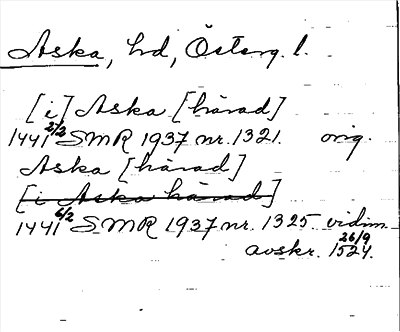 Aska, hd, Österg. l.
[i] Aska [härad]
1441 2/2 SMR 1937 nr. 1321. orig.
Aska [härad]
[i Aska härad]
1441 6/2 SMR 1937 nr. 1325 vidim.
avskr. 26/9 1524.